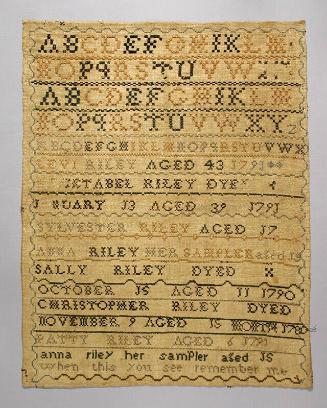 ABCDEFGHIKLM
NOPQRSTUVWXY
ABCDEFGHIKLM
NOPQRSTUVWXYZ
ABCDEFGHIKLMNOPQRSTUVWX
LEVI RILEY AGED 43 1791
RILEY DYED
J NUARY 13 AGED 39 1791
SYLVESTER RILEY AGED 17
ANNA RILEY HER SAMPLER aged 15
SALLY RILEY DYED X
OCTOBER 15 AGED 11 1790
CHRISTOPHER RILEY DYED
NOVEMBER 9 AGED 15 1790
PATTY RILEY AGED 6 1791
anna riley her sampler aged 15
when this you see remember me